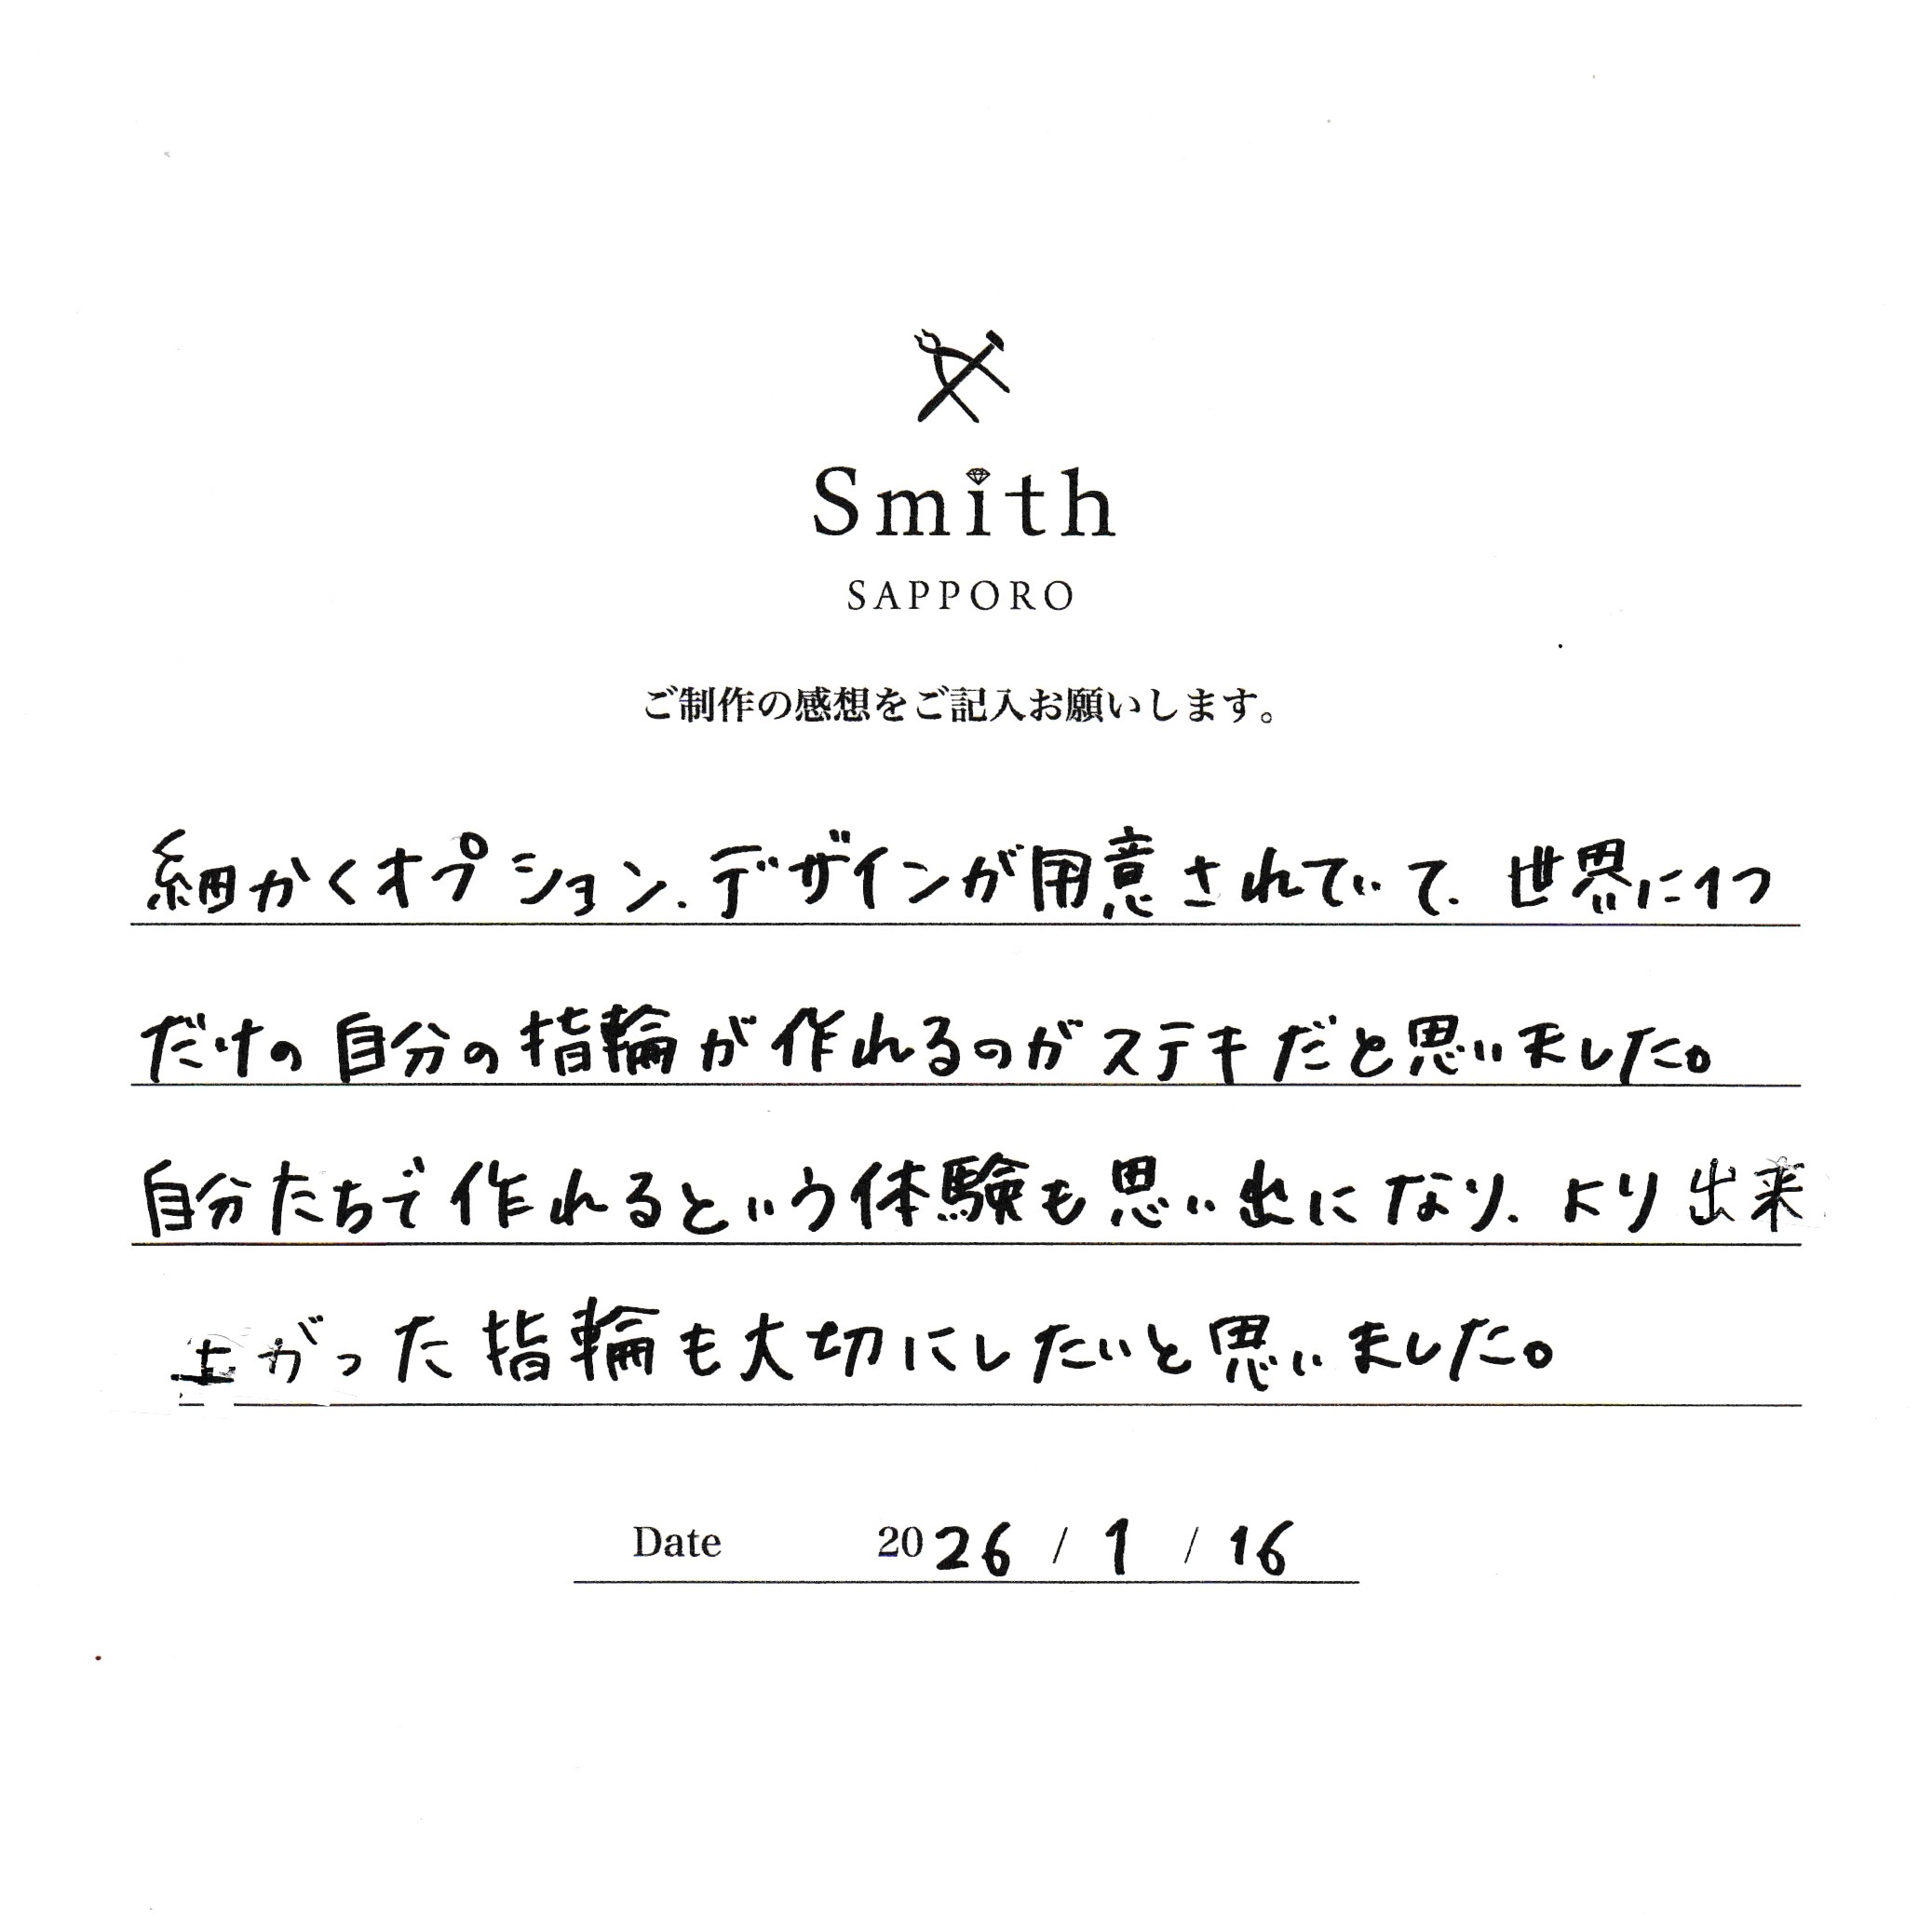 Smith
SAPPORO
ご制作の感想をご記入お願いします。
細かくオプション、デザインが用意されていて、世界に1つ
だけの自分の指輪が作れるのがステキだと思いました。
自分たちで作れるという体験も思い出になり、より出来
上がった指輪も大切にしたいと思いました。
Date 2026 / 1 / 16